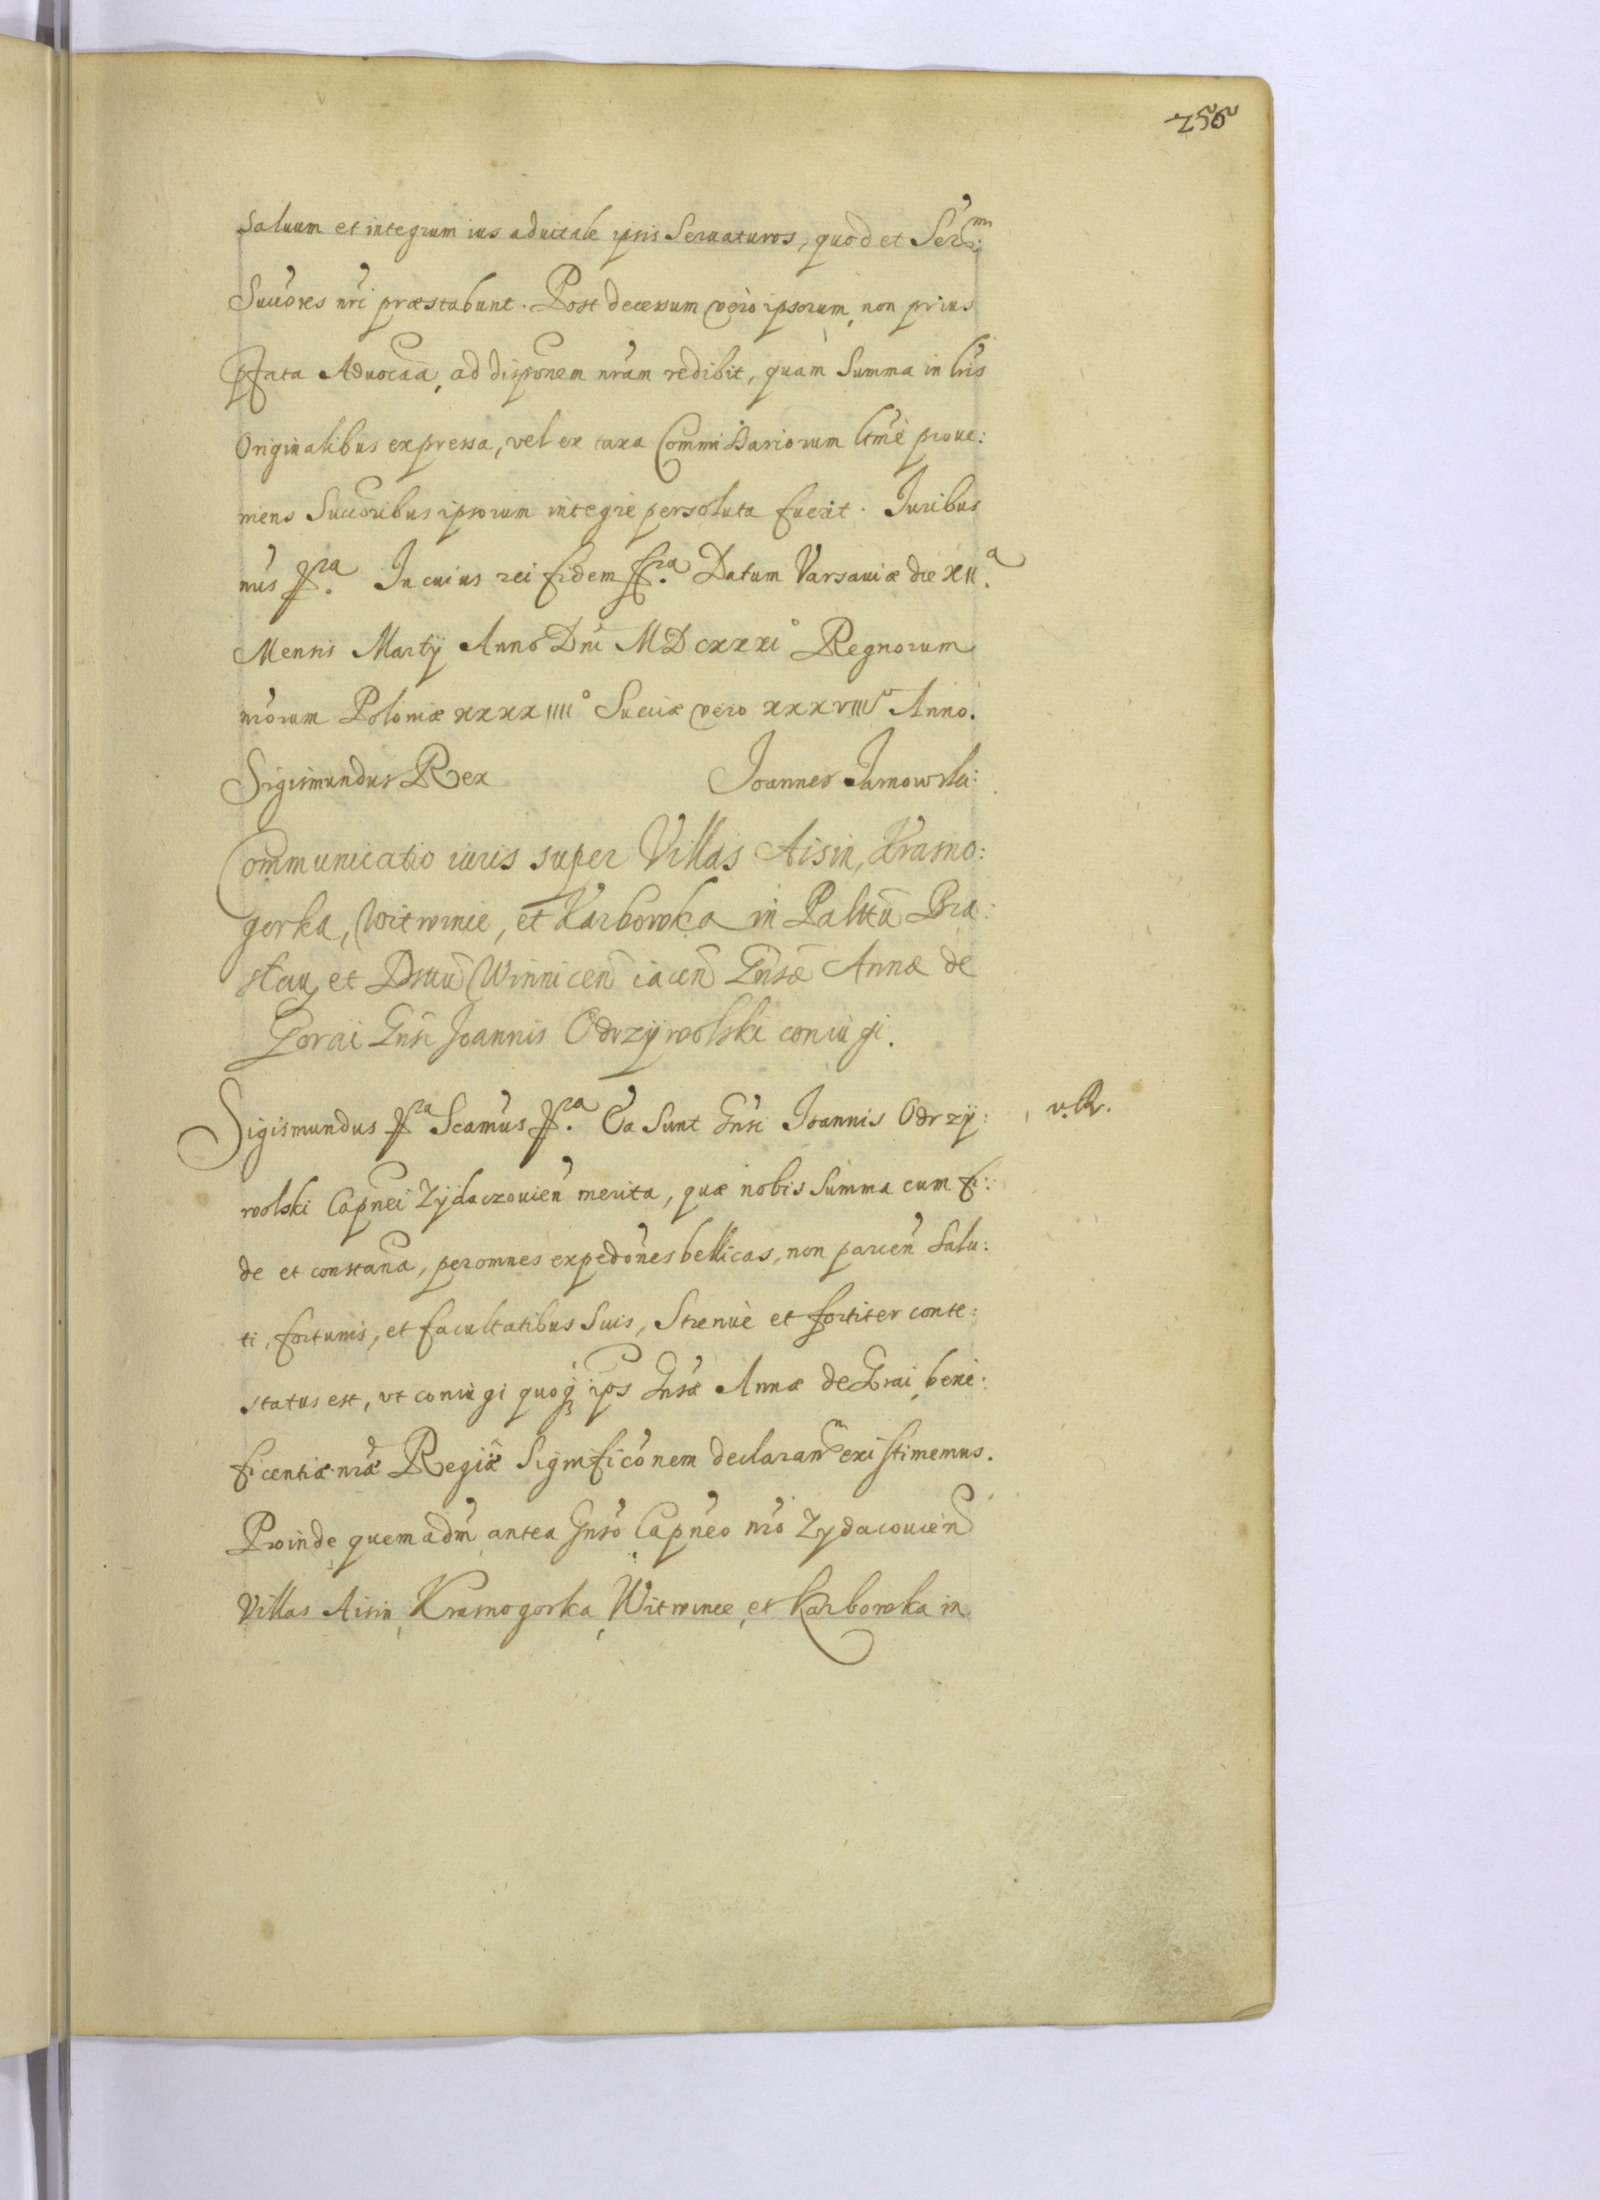 256
Saluum et integrum ius aduitale ipsis Seruaturos, quod et Ser:mi
Succ͠ores nr͠i præstabunt. Post decessum vero ipsorum, non prius
Pfata Aduoca͠a, ad dispon͠em nr͠am redibit, quam Summa in lr͠is
Originalibus expressa, vel ex taxa Commissariorum ltm͠e proue:
niens Succ͠oribus ipsorum integre persoluta fuerit. Juribus
nr͠is pra. In cuius rei fidem pra. Datum Varsauiæ die XII.a
Mensis Martij Anno Dn͠i MDCXXXIo Regnorum
nr͠orum Poloniæ XXXXIIIIo Sueciæ vero XXXVIIIo Anno.
Sigismundus Rex Joannes Jarnowski:
Communicatio iuris super Villas Aisin, Krasno:
gorka, Witwince, et Karbowka in Palttu͠ Bra:
slau, et Dsttu͠ Winnicen͠ iacen͠ Gn͠sæ Annæ de
Gorai Gn͠si Joannis Odrzÿwolski coniugi.
Sigismundus pra Scam͠us pra. Ea Sunt Gn͠si Joannis Odrzÿ:
v.R.
wolski Capn͠ei Zÿdaczouien͠ merita, quæ nobis Summa cum fi:
de et constan͠a, per omnes exped͠ones bellicas, non parcen͠ Salu:
ti, fortunis, et facultatibus Suis, Strenuè et fortiter conte:
status est, vt coniugi quoq; ips͠ Gn͠sæ Annæ de Grai, bene:
ficentiæ nr͠æ Regiæ Significo͠nem declaran͠m existimemus.
Proinde quemadm͠ antea Gn͠so Capn͠eo nr͠o Zydacouien͠
Villas Aisin, Krasnogorka, Witwince, et Karbowka in